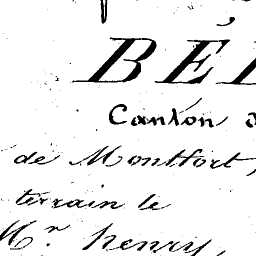 BÉ
Canton
de Montfort,
terrain le
Mr. henry,